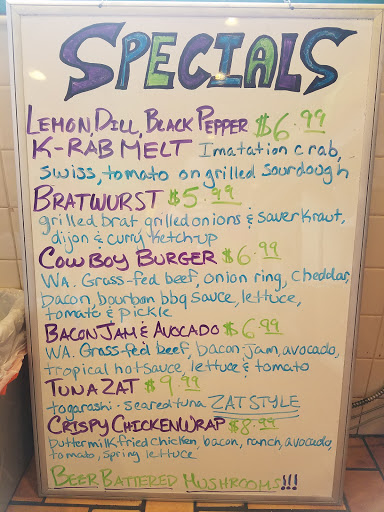 SPECIALS
LEMON, DILL, BLACK PEPPER $6.99
K-RAB MELT Imatation crab,
swiss, tomato on grilled sourdough
BRATWURST $5.99
grilled brat grilled onions & sauerkraut,
dijon & curry ketchup
COWBOY BURGER $6.99
WA. Grass-fed beef, onion ring, cheddar,
bacon, bourbon bbq sauce, lettuce,
tomato & pickle
BACON JAM & AVOCADO $6.99
WA. Grass-fed beef, bacon jam, avocado,
tropical hot sauce, lettuce & tomato
TUNA ZAT $9.99
togarashi-seared tuna ZAT STYLE
CRISPY CHICKEN WRAP $8.99
buttermilk fried chicken, bacon, ranch, avocado,
tomato, spring lettuce
BEER BATTERED MUSHROOMS!!!